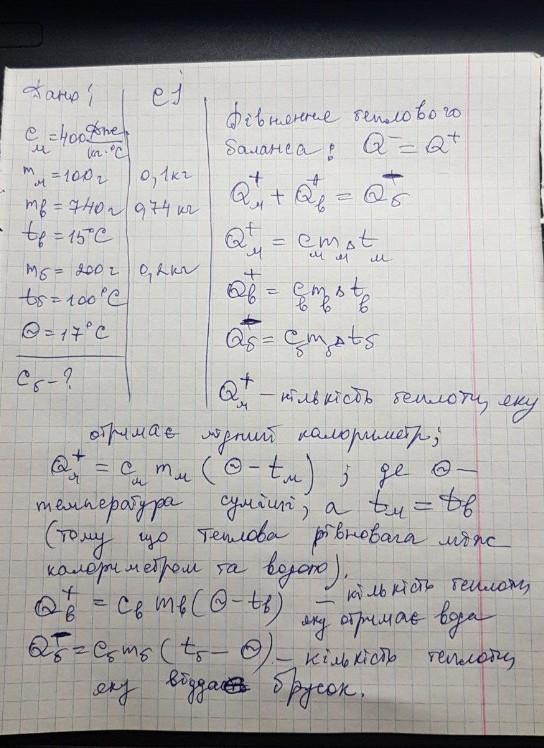 Дано: СІ
c_м = 400 Дж/кг·°C
m_м = 100г 0,1кг
m_в = 740г 0,74 кг
t_в = 15°C
m_б = 200г 0,2кг
t_б = 100°C
Θ = 17°C
c_б - ?
Рівняння теплового
баланса: Q⁻ = Q⁺
Q_м⁺ + Q_в⁺ = Q_б⁻
Q_м⁺ = c_м m_м Δt_м
Q_в⁺ = c_в m_в Δt_в
Q_б⁻ = c_б m_б Δt_б
Q_м⁺ – кількість теплоти, яку
отримає мідний калориметр;
Q_м⁺ = c_м m_м (Θ - t_м) ; де Θ –
температура суміші, а t_м = t_в
(тому що теплова рівновага між
калориметром та водою).
Q_в⁺ = c_в m_в (Θ - t_в) – кількість теплоти,
яку отримає вода
Q_б⁻ = c_б m_б (t_б - Θ) – кількість теплоти,
яку віддав брусок.